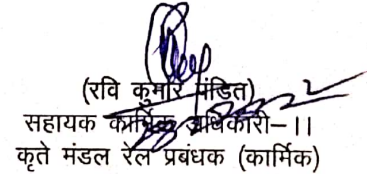 (रवि कुमार पंडित)
सहायक कार्मिक अधिकारी-II
कृते मंडल रेल प्रबंधक (कार्मिक)